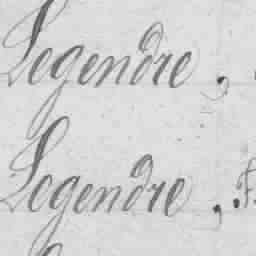 Legendre,
Legendre, F.